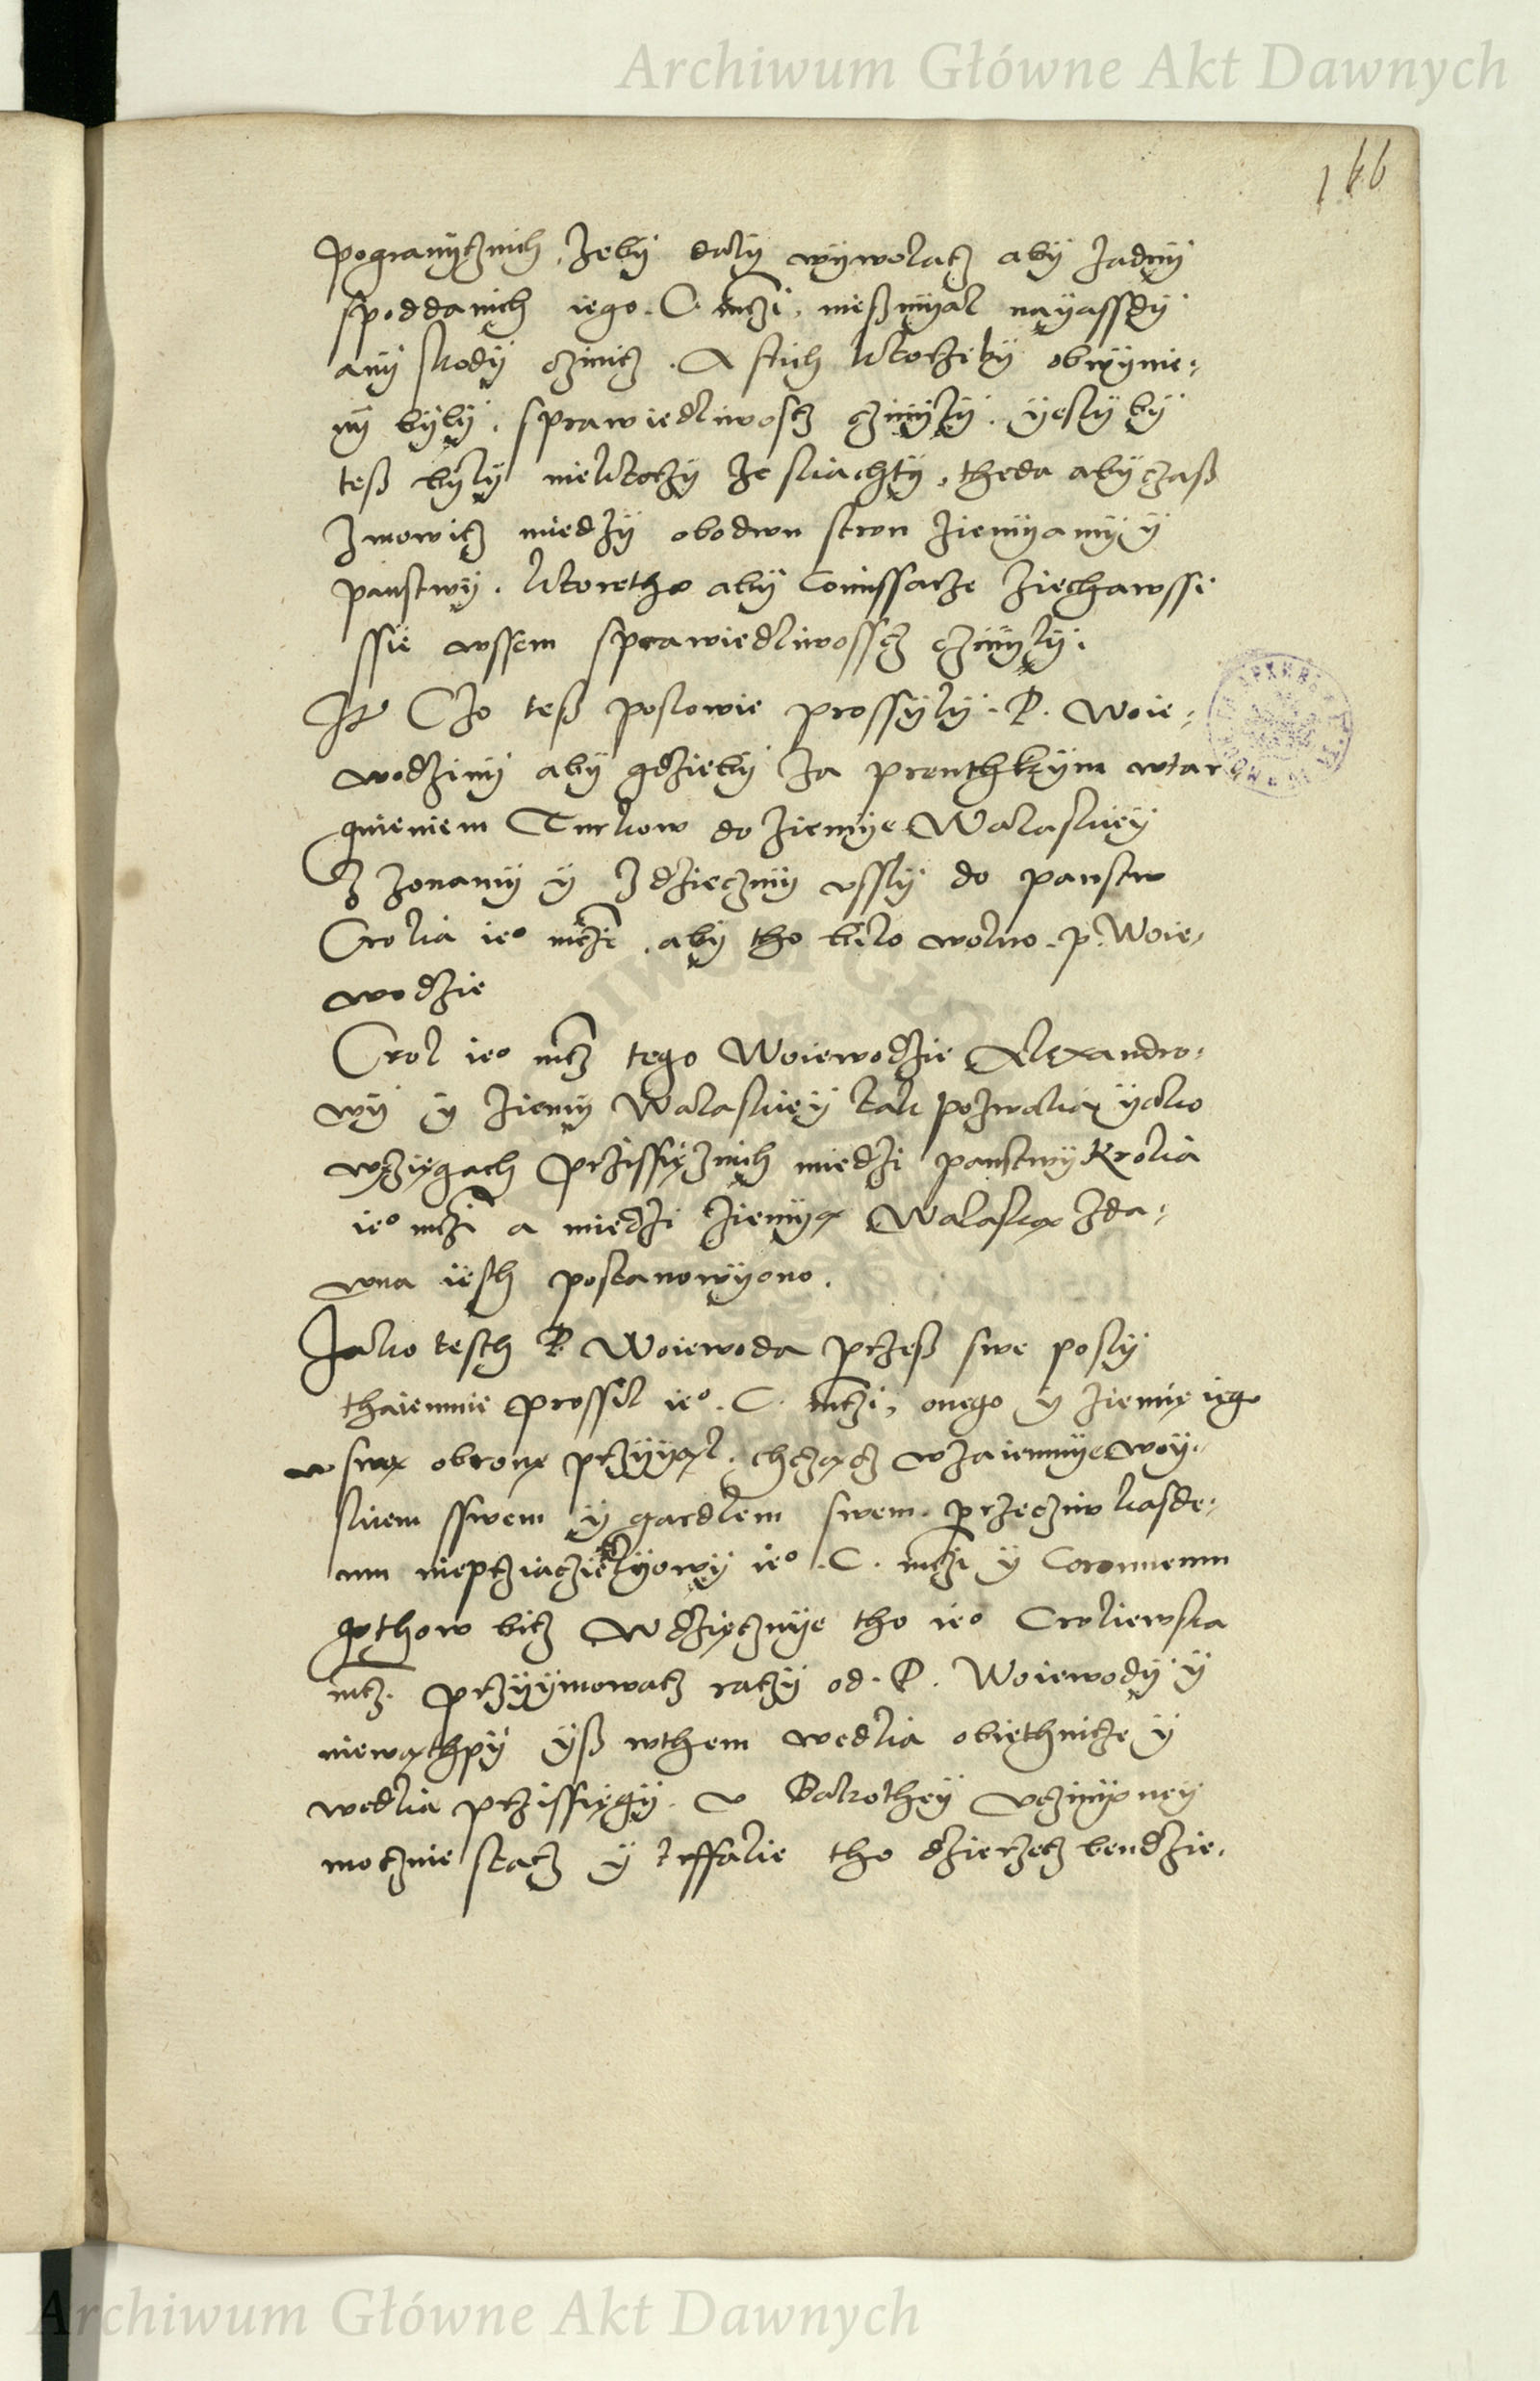 Archiwum Główne Akt Dawnych
166
pogranycznich, zeby daly wywolacz aby zadny
spoddanich iego. C. mczi. nießmyal nayassdy
any skody czinicz. A stich ktorziby obwynie-
ny byly, sprawiedliwoscz czinyly. yesly by
teß byly niektorzy ze sliachty, theda aby czaß
zmowicz miedzy obodwu stron ziemyamy y
panstwy. ktoretho aby Comissarze ziechawssi
ssie wssem sprawiedliwosscz czinyly.
It Czo teß poslowie prossyly. P. Woie-
wodziny aby gdzieby za prenthkym wtar
gnieniem Turkow do ziemye Walaskiey
Z zonamy y zdzieczmy vssly do panstw
Crolia ie° mczi. aby tho bilo wolno. p. Woie-
wodzie
Crol ie° mcz tego Woiewodzie Alexandro-
wy y ziemy Walaskiey tak pozwalia yako
wxięgach przissięznich miedzi panstwy Krolia
ie° mczi a miedzi ziemyą Walaską zda-
wna iesth postanowyono.
Jako tesch P. Woiewoda przeß swe posly
thaiemnie prossil ie°. C. mczi, onego y ziemię iego
w swą obronę przyyął. chczącz wzaiemnye woy-
skiem sswem y gardlem swem. przecziw kasde-
mu nieprziaczielyowy ie°. C. mczi y Coronnemu
gothow bicz Wdzięcznye tho ie° Croliewska
mcz. przyymowacz raczy od. P. Woiewody y
niewąthpy yß wthem wedlia obiethnicze y
wedlia przissięgy. v Bakothey vczinyoney
mocznie stacz y trffalie tho dzierzecz bendzie.
Archiwum Główne Akt Dawnych